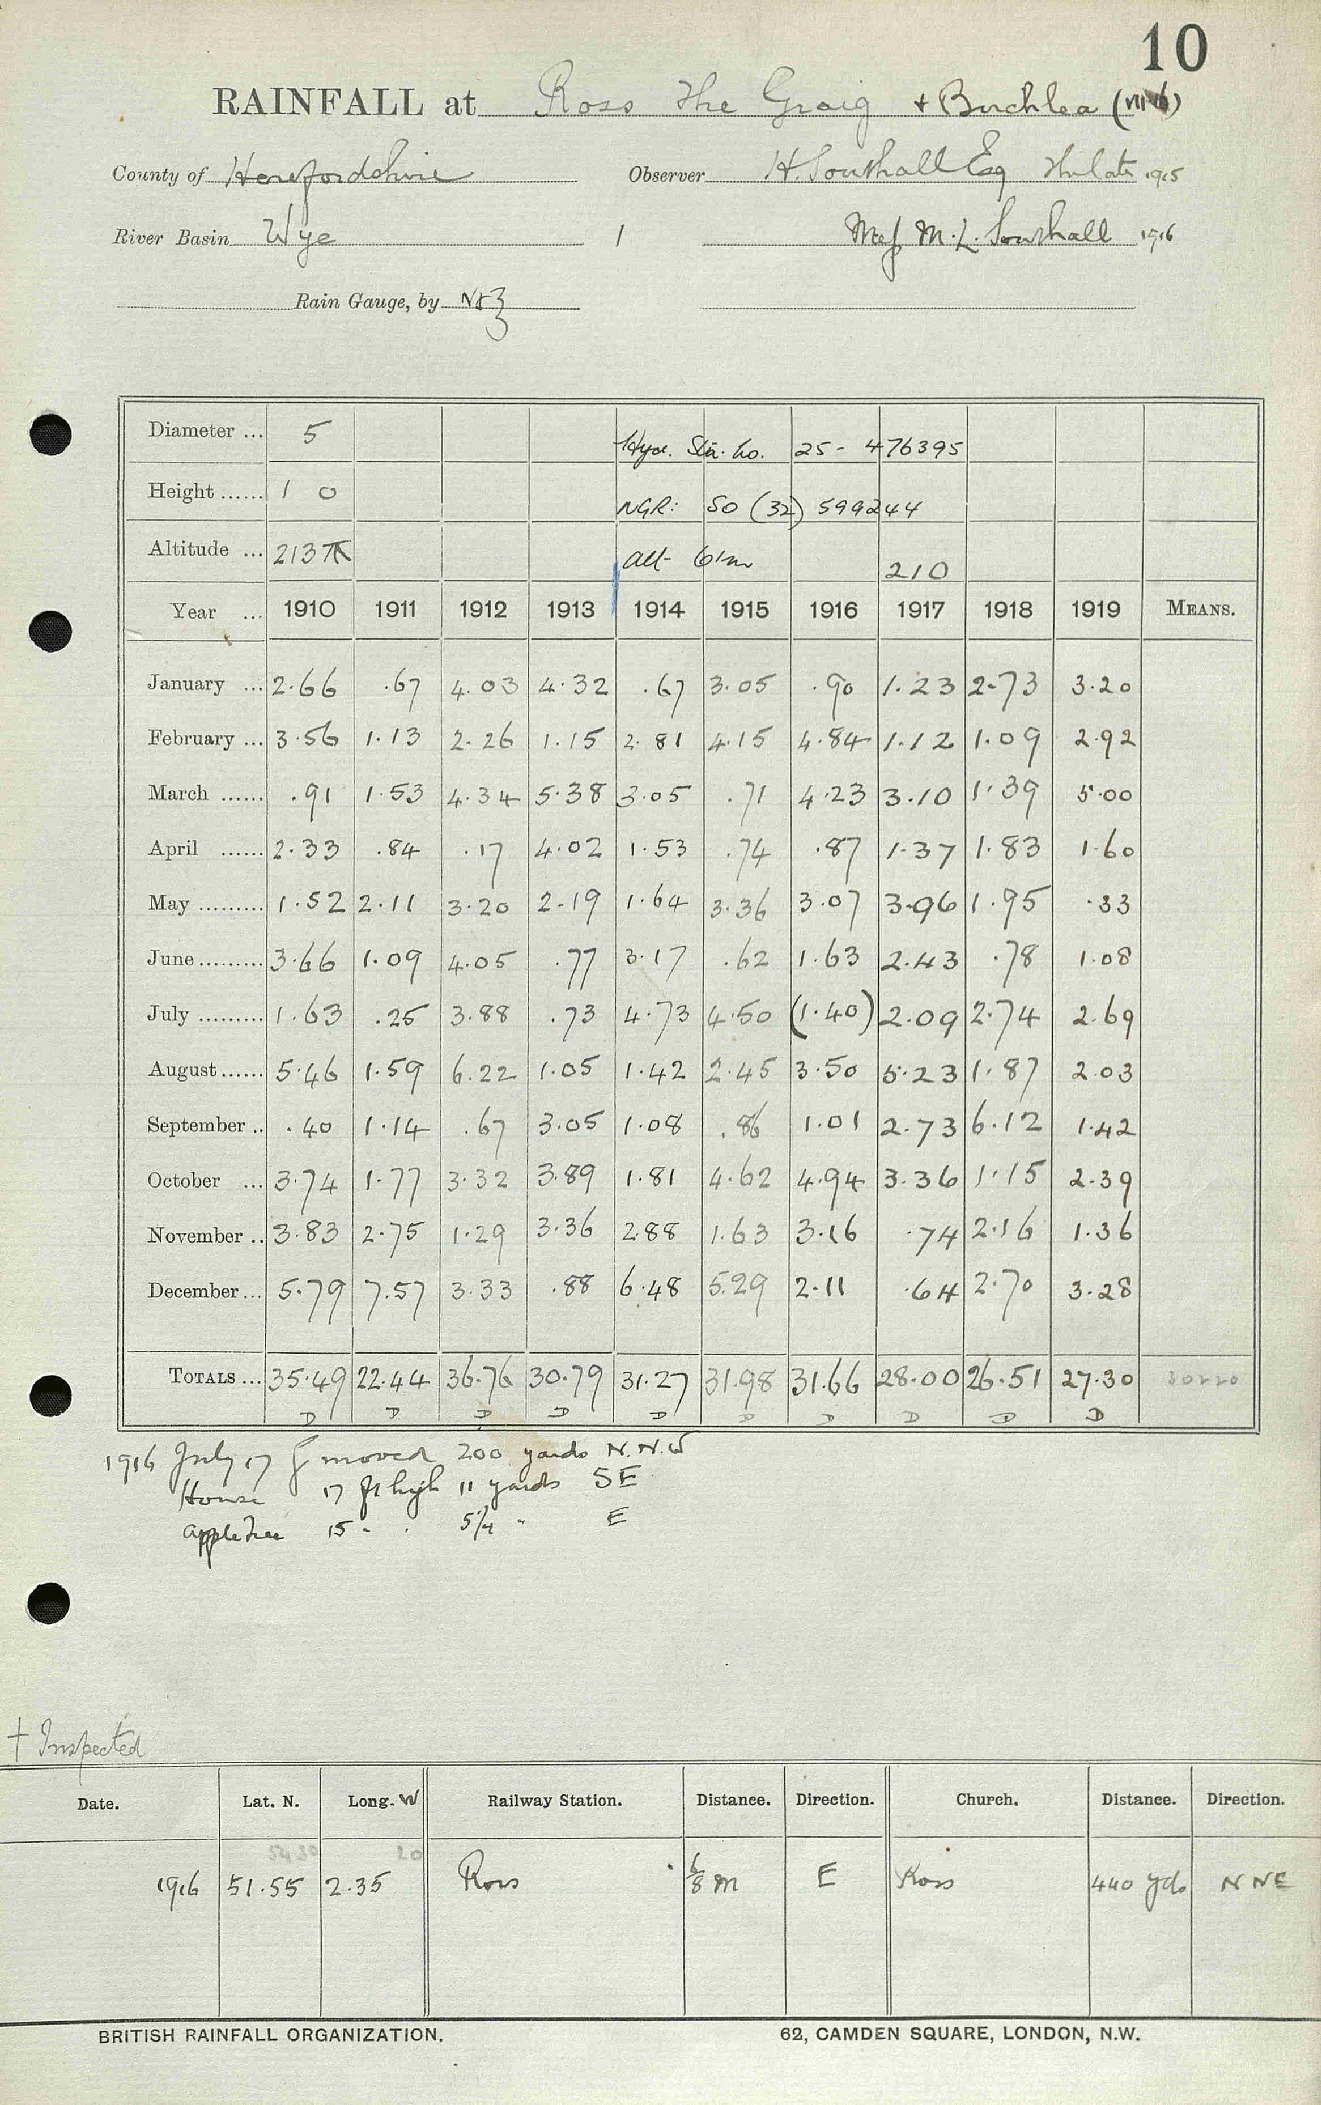 10
RAINFALL at Ross The Graig + Birchlea
County of Herefordshire Observer H. Southall Esq 1915
River Basin Wye 1 M. L. Southall 1916
Rain Gauge, by N&Z
Diameter ... 5 Hyd. Sta. No. 25 - 476395
Height ...... 1 0 NGR: SO (32) 599244
Altitude ... 213 alt 61m 210
Year ... 1910 1911 1912 1913 1914 1915 1916 1917 1918 1919 MEANS.
January ... 2.66 .67 4.03 4.32 .67 3.05 .90 1.23 2.73 3.20
February ... 3.56 1.13 2.26 1.15 2.81 4.15 4.84 1.12 1.09 2.92
March ...... .91 1.53 4.34 5.38 3.05 .71 4.23 3.10 1.39 5.00
April ...... 2.33 .84 .17 4.02 1.53 .74 .87 1.37 1.83 1.60
May ......... 1.52 2.11 3.20 2.19 1.64 3.36 3.07 3.96 1.95 .33
June ......... 3.66 1.09 4.05 .77 3.17 .62 1.63 2.43 .78 1.08
July ......... 1.63 .25 3.88 .73 4.73 4.50 (1.40) 2.09 2.74 2.69
August ...... 5.46 1.59 6.22 1.05 1.42 2.45 3.50 5.23 1.87 2.03
September .. .40 1.14 .67 3.05 1.08 .86 1.01 2.73 6.12 1.42
October ... 3.74 1.77 3.32 3.89 1.81 4.62 4.94 3.36 1.15 2.39
November .. 3.83 2.75 1.29 3.36 2.88 1.63 3.16 .74 2.16 1.36
December ... 5.79 7.57 3.33 .88 6.48 5.29 2.11 .64 2.70 3.28
TOTALS ... 35.49 22.44 36.76 30.79 31.27 31.98 31.66 28.00 26.51 27.30
D D D D D D D D D D
1916 July 17 moved 200 yards N.N.W
House 17 ft high 11 yards SE
Apple tree 15 " . 5¼ " E
† Inspected
Date. Lat. N. Long. W Railway Station. Distance. Direction. Church. Distance. Direction.
1916 51.55 2.35 Ross 6/8 m E Ross 440 yds NNE
BRITISH RAINFALL ORGANIZATION. 62, CAMDEN SQUARE, LONDON, N.W.